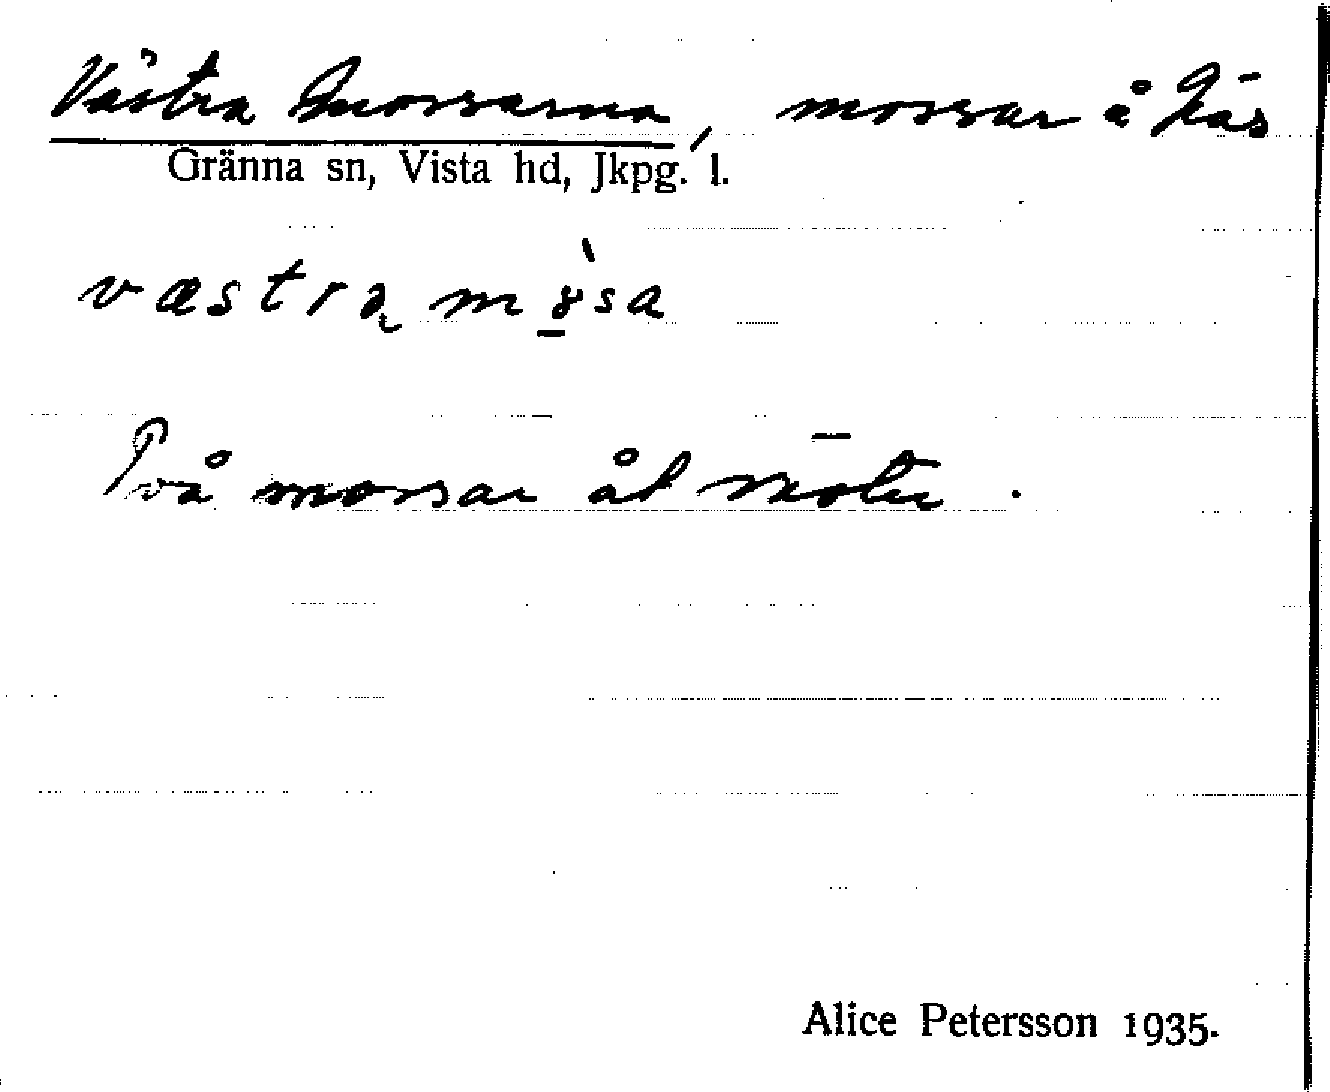 Västra Mossarna, mossar å Näs
Gränna sn, Vista hd, Jkpg. l.
væstra mòsa
Två mossar åt väster.
Alice Petersson 1935.